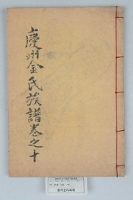 慶州金氏族譜卷之十